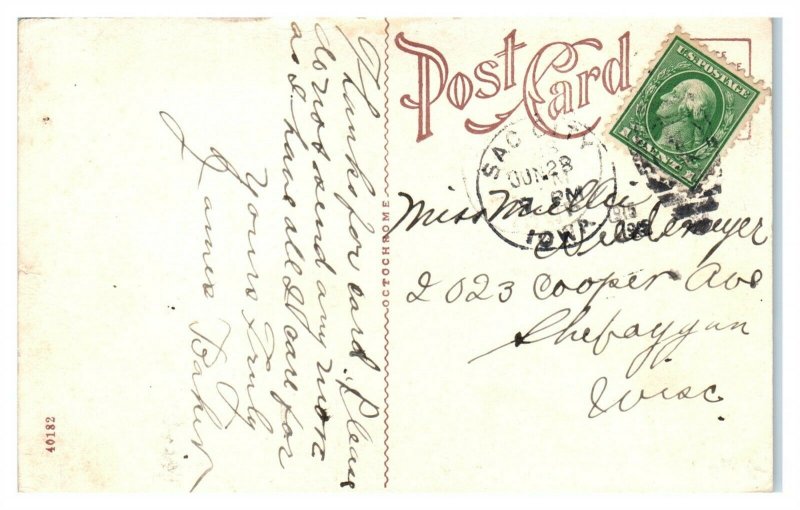 Post Card
U.S. POSTAGE
SAC CITY
JUN 28
PM
IOWA
OCTOCHROME
40182
Thanks for card. Please
do not send any more
as I have all I care for
Yours Truly
James Baker
Miss
2023 Cooper Ave
Shebaygan
Wisc